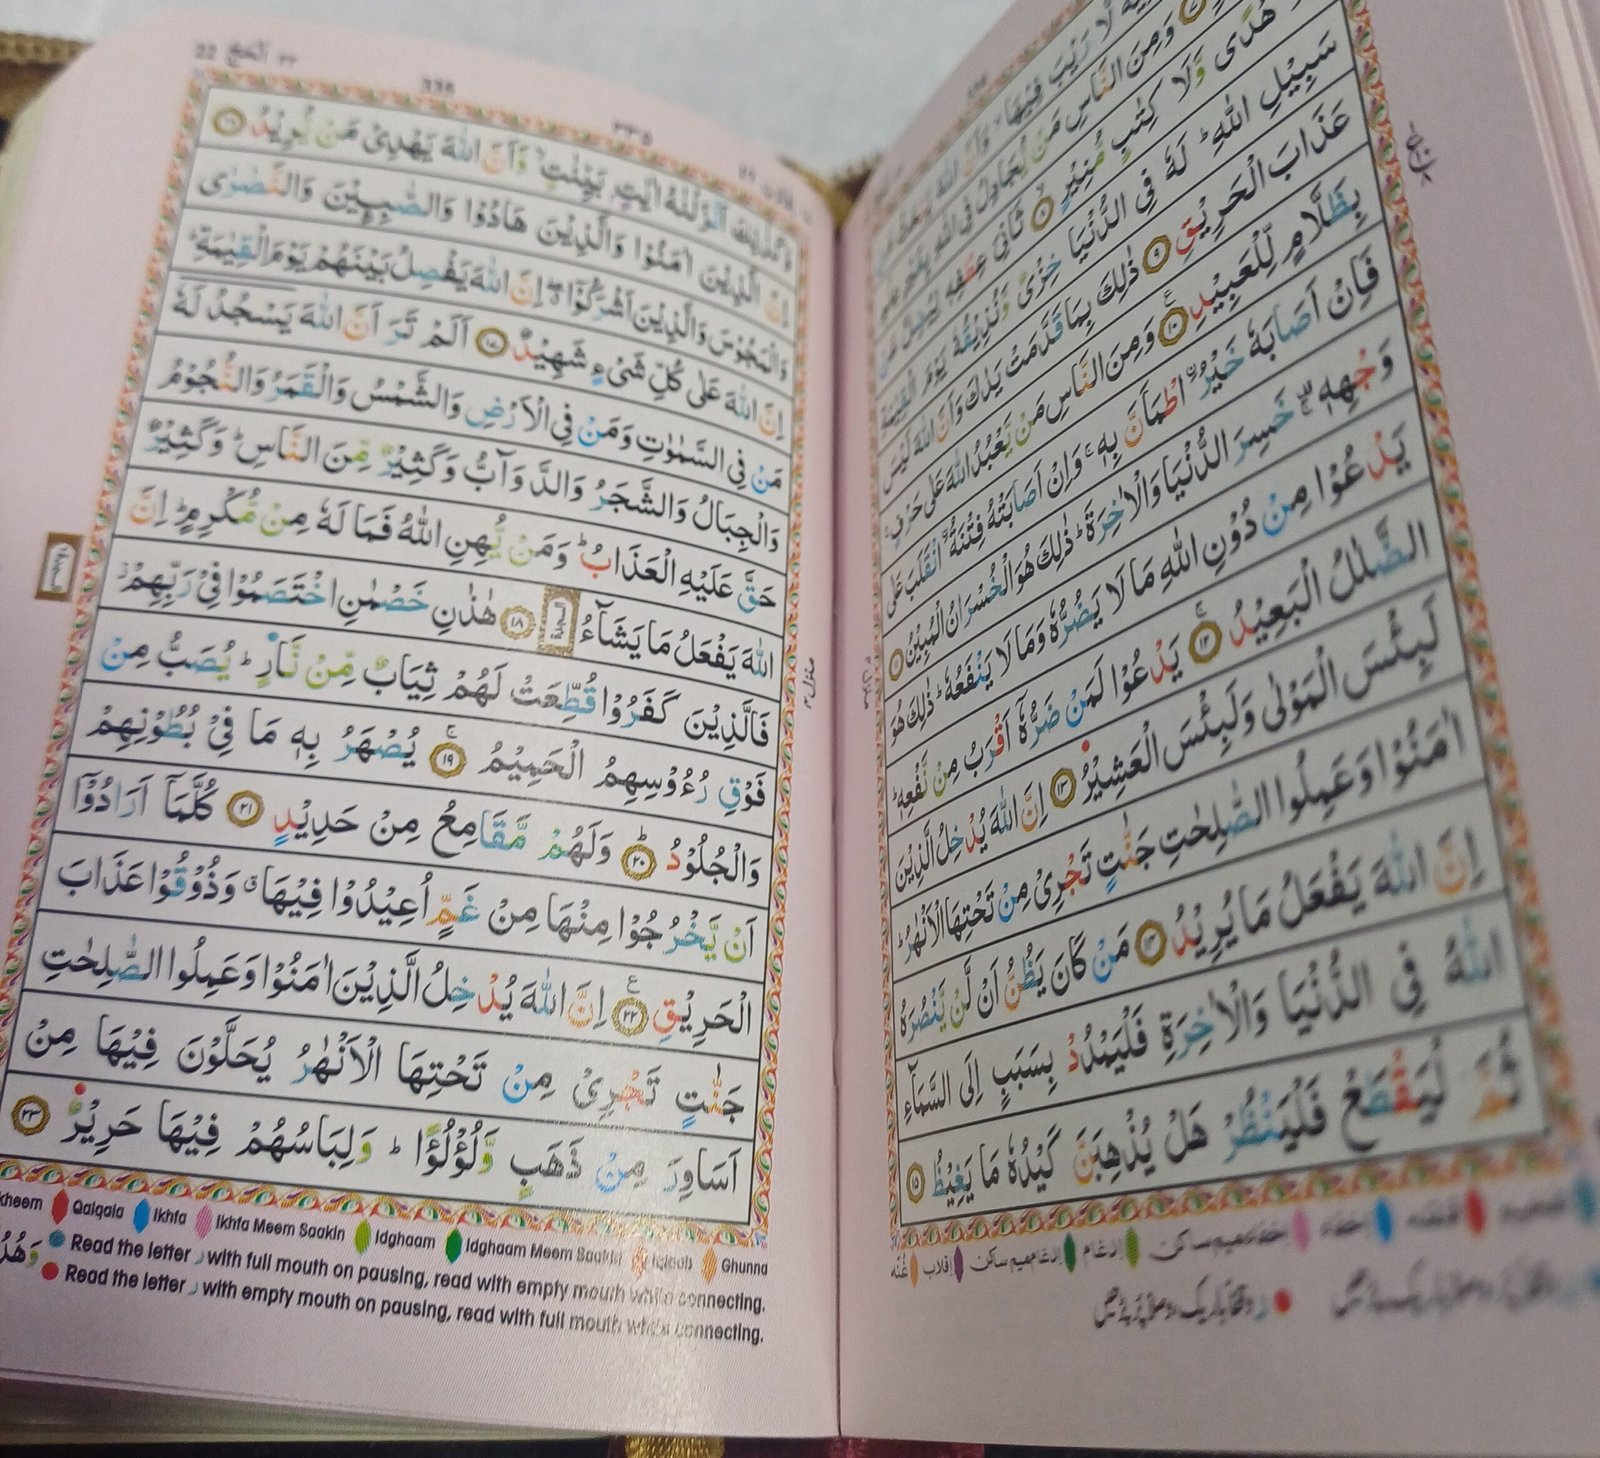 لَا رَيْبَ فِيْهَا ۙ وَاَنَّ اللّٰهَ
وَمِنَ النَّاسِ مَنْ يُّجَادِلُ فِي اللّٰهِ بِغَيْرِ
هُدًى وَّلَا كِتٰبٍ مُّنِيْرٍ ۙ ۸ ثَانِيَ عِطْفِهٖ لِيُضِلَّ عَنْ
سَبِيْلِ اللّٰهِ ؕ لَهٗ فِي الدُّنْيَا خِزْىٌ وَّنُذِيْقُهٗ يَوْمَ الْقِيٰمَةِ
عَذَابَ الْحَرِيْقِ ۹ ذٰلِكَ بِمَا قَدَّمَتْ يَدٰكَ وَاَنَّ اللّٰهَ لَيْسَ
بِظَلَّامٍ لِّلْعَبِيْدِ ۱۰ وَمِنَ النَّاسِ مَنْ يَّعْبُدُ اللّٰهَ عَلٰى حَرْفٍ ۚ
فَاِنْ اَصَابَهٗ خَيْرُ ۨ اطْمَاَنَّ بِهٖ ۚ وَاِنْ اَصَابَتْهُ فِتْنَةُ ۨ انْقَلَبَ عَلٰى
وَجْهِهٖ ۚ خَسِرَ الدُّنْيَا وَالْاٰخِرَةَ ؕ ذٰلِكَ هُوَ الْخُسْرَانُ الْمُبِيْنُ ۱۱
يَدْعُوْا مِنْ دُوْنِ اللّٰهِ مَا لَا يَضُرُّهٗ وَمَا لَا يَنْفَعُهٗ ؕ ذٰلِكَ هُوَ
الضَّلٰلُ الْبَعِيْدُ ۱۲ يَدْعُوْا لَمَنْ ضَرُّهٗۤ اَقْرَبُ مِنْ نَّفْعِهٖ ؕ
لَبِئْسَ الْمَوْلٰى وَلَبِئْسَ الْعَشِيْرُ ۱۳ اِنَّ اللّٰهَ يُدْخِلُ الَّذِيْنَ
اٰمَنُوْا وَعَمِلُوا الصّٰلِحٰتِ جَنّٰتٍ تَجْرِىْ مِنْ تَحْتِهَا الْاَنْهٰرُ ؕ
اِنَّ اللّٰهَ يَفْعَلُ مَا يُرِيْدُ ۱۴ مَنْ كَانَ يَظُنُّ اَنْ لَّنْ يَّنْصُرَهُ
اللّٰهُ فِي الدُّنْيَا وَالْاٰخِرَةِ فَلْيَمْدُدْ بِسَبَبٍ اِلَى السَّمَآءِ
ثُمَّ لْيَقْطَعْ فَلْيَنْظُرْ هَلْ يُذْهِبَنَّ كَيْدُهٗ مَا يَغِيْظُ ۱۵
قلقله اخفاء اخفاء میم ساکن ادغام ادغام میم ساکن اقلاب غنّه
22 اَلْحَجّ ۲۲
335 ۳۳۵
وَكَذٰلِكَ اَنْزَلْنٰهُ اٰيٰتٍۭ بَيِّنٰتٍ ۙ وَّاَنَّ اللّٰهَ يَهْدِىْ مَنْ يُّرِيْدُ ۱۶
اِنَّ الَّذِيْنَ اٰمَنُوْا وَالَّذِيْنَ هَادُوْا وَالصّٰبِـِٕيْنَ وَالنَّصٰرٰى
وَالْمَجُوْسَ وَالَّذِيْنَ اَشْرَكُوْۤا ۖ اِنَّ اللّٰهَ يَفْصِلُ بَيْنَهُمْ يَوْمَ الْقِيٰمَةِ ؕ
اِنَّ اللّٰهَ عَلٰى كُلِّ شَىْءٍ شَهِيْدٌ ۱۷ اَلَمْ تَرَ اَنَّ اللّٰهَ يَسْجُدُ لَهٗ
مَنْ فِي السَّمٰوٰتِ وَمَنْ فِي الْاَرْضِ وَالشَّمْسُ وَالْقَمَرُ وَالنُّجُوْمُ
وَالْجِبَالُ وَالشَّجَرُ وَالدَّوَآبُّ وَكَثِيْرٌ مِّنَ النَّاسِ ؕ وَكَثِيْرٌ
حَقَّ عَلَيْهِ الْعَذَابُ ؕ وَمَنْ يُّهِنِ اللّٰهُ فَمَا لَهٗ مِنْ مُّكْرِمٍ ؕ اِنَّ
اللّٰهَ يَفْعَلُ مَا يَشَآءُ ۱۸ السجدة هٰذٰنِ خَصْمٰنِ اخْتَصَمُوْا فِيْ رَبِّهِمْ ز
السجدة
فَالَّذِيْنَ كَفَرُوْا قُطِّعَتْ لَهُمْ ثِيَابٌ مِّنْ نَّارٍ ؕ يُصَبُّ مِنْ
فَوْقِ رُءُوْسِهِمُ الْحَمِيْمُ ۱۹ يُصْهَرُ بِهٖ مَا فِيْ بُطُوْنِهِمْ
وَالْجُلُوْدُ ۲۰ وَلَهُمْ مَّقَامِعُ مِنْ حَدِيْدٍ ۲۱ كُلَّمَاۤ اَرَادُوْۤا
اَنْ يَّخْرُجُوْا مِنْهَا مِنْ غَمٍّ اُعِيْدُوْا فِيْهَا ۗ وَذُوْقُوْا عَذَابَ
الْحَرِيْقِ ۲۲ اِنَّ اللّٰهَ يُدْخِلُ الَّذِيْنَ اٰمَنُوْا وَعَمِلُوا الصّٰلِحٰتِ
جَنّٰتٍ تَجْرِىْ مِنْ تَحْتِهَا الْاَنْهٰرُ يُحَلَّوْنَ فِيْهَا مِنْ
اَسَاوِرَ مِنْ ذَهَبٍ وَّلُؤْلُؤًا ؕ وَلِبَاسُهُمْ فِيْهَا حَرِيْرٌ ۲۳
منزل ۴
kheem Qalqala Ikhfa Ikhfa Meem Saakin Idghaam Idghaam Meem Saakin Iqlaab Ghunna
Read the letter ر with full mouth on pausing, read with empty mouth while connecting.
وَهُدُ
Read the letter ر with empty mouth on pausing, read with full mouth while connecting.